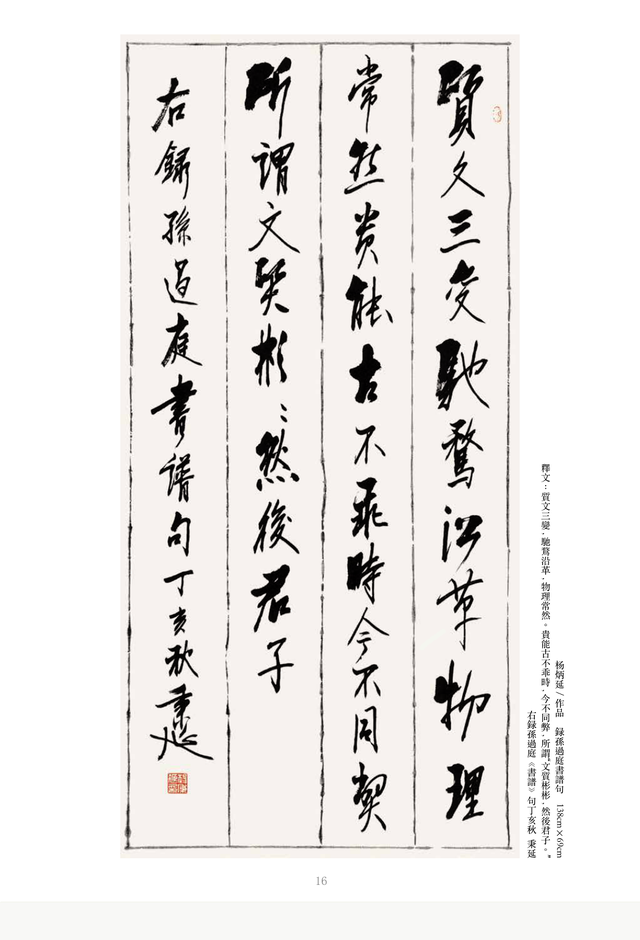 質文三變馳騖沿革物理
常然貴能古不乖時今不同弊
所謂文質彬彬然後君子
右録孫過庭書譜句丁亥秋秉延
杨炳延/作品 録孫過庭書譜句 138cm×69cm
釋文：質文三變，馳騖沿革，物理常然。貴能古不乖時，今不同弊，所謂“文質彬彬，然後君子。”
右録孫過庭《書譜》句丁亥秋 秉延
16